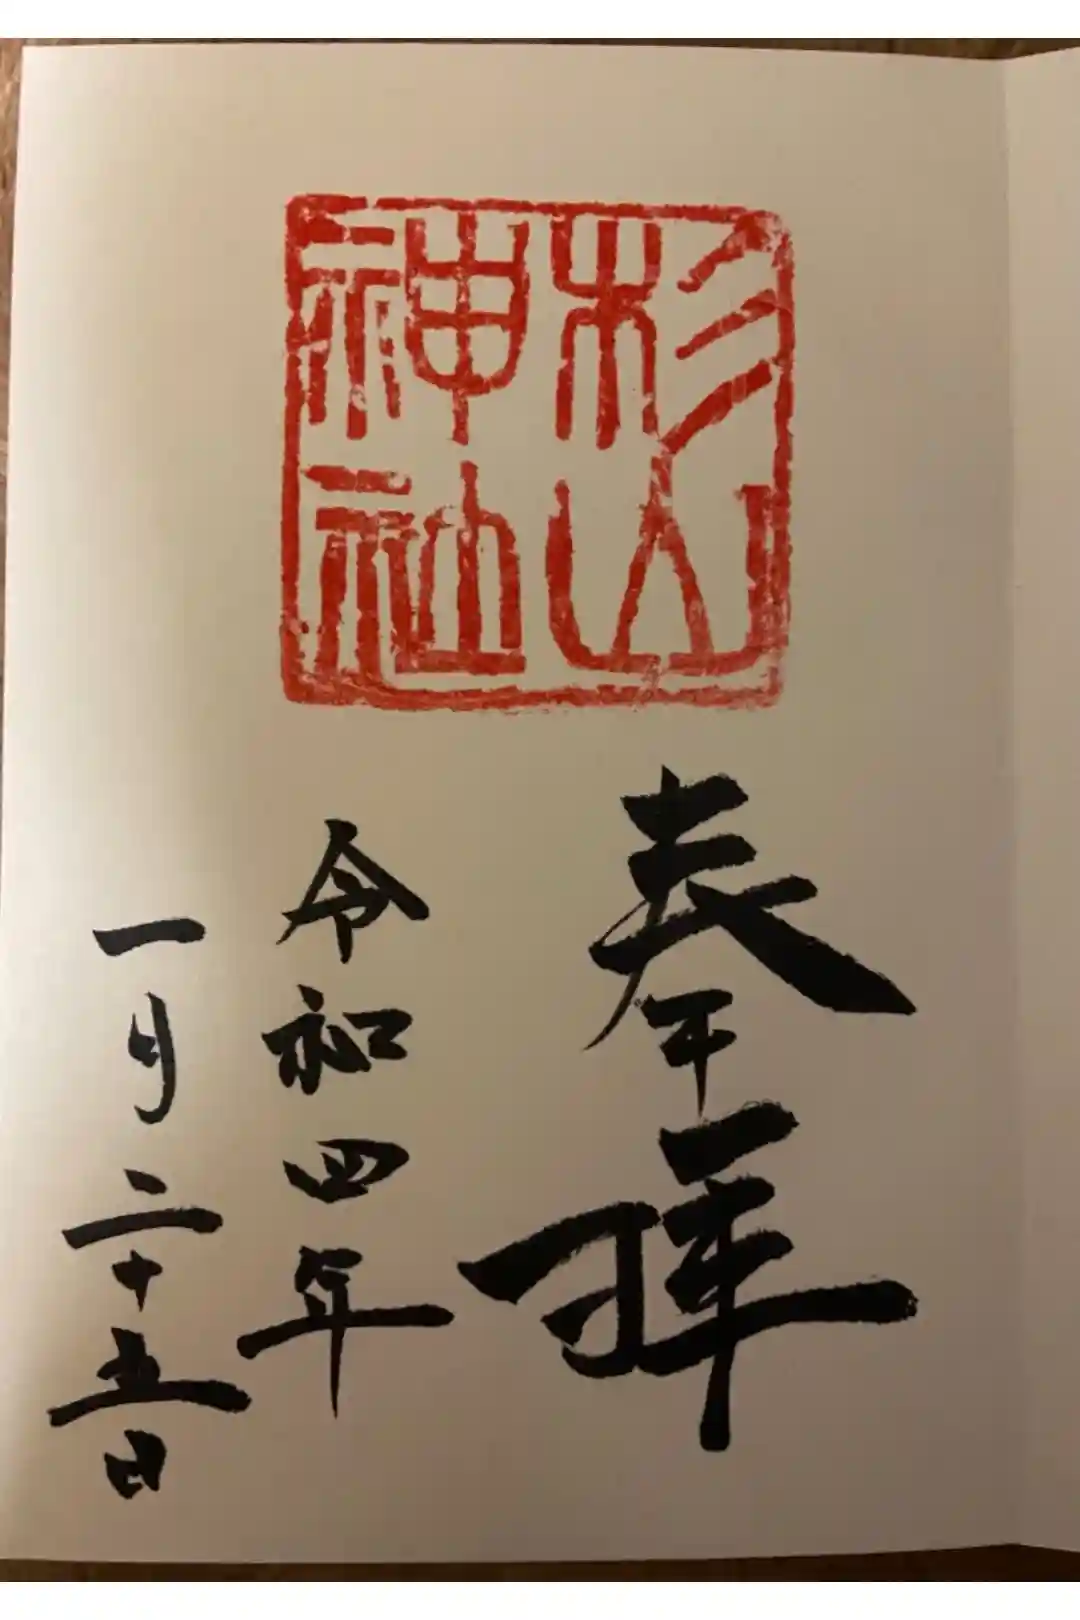 杉山
神社
奉拝
令和四年
一月二十五日